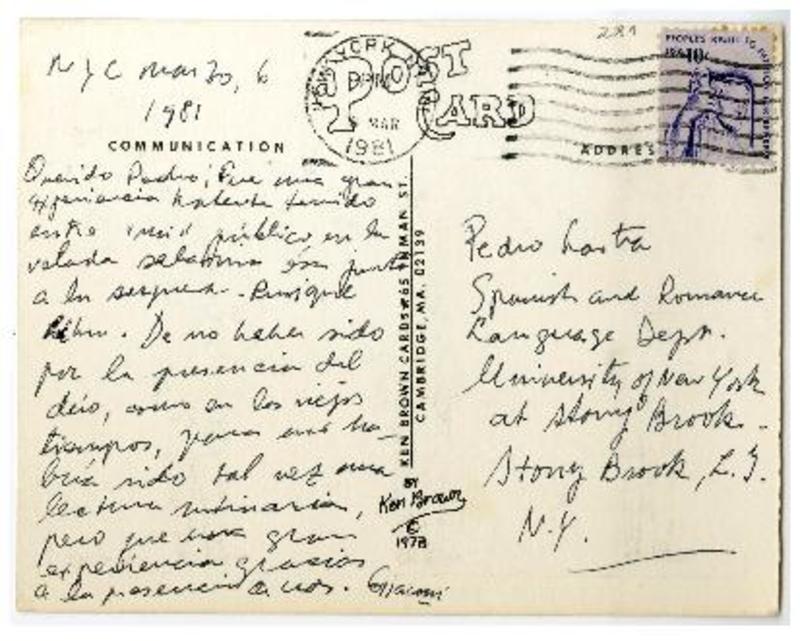 281
NYC marzo, 6
1981
NEW YORK
PM
MAR
1981
POST
CARD
PEOPLES RIGHT TO PETITION FOR REDRESS
USA 10c
COMMUNICATION
ADDRES
Querido Pedro; Fue una gran
experiencia haberte tenido
entre mi público, en la
velada
a la Enrique
Lihn. De no haber sido
por la presencia del
dúo, como en los viejos
tiempos, para mí ha-
bría sido tal vez una
lectura rutinaria,
pero fue una gran
experiencia gracias
a la presencia de uds. Giaconi
KEN BROWN CARDS 65 INMAN ST.
CAMBRIDGE, MA. 02139
BY
Ken Brown
©
1978
Pedro Lastra
Spanish and Romance
Language Dept.
University of New York
at Stony Brook -
Stony Brook, L.I.
N.Y.